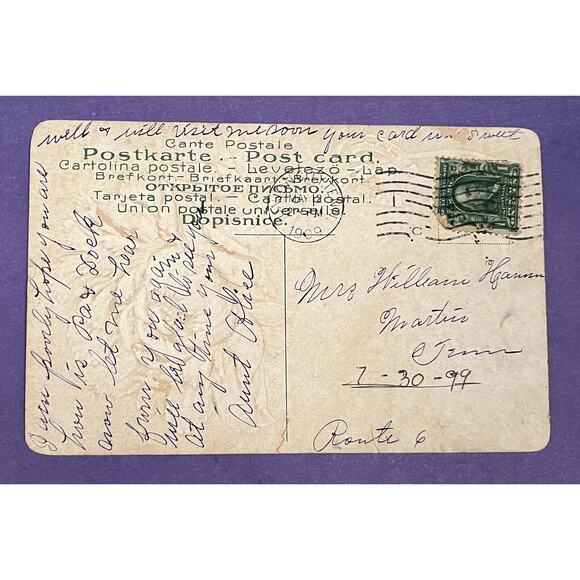 well & will visit me soon your card was sweet
Carte Postale
Postkarte - - Post card.
Cartolina postale - Levelezö - Lap.
Brefkort - Briefkaart - Brevkort.
ОТКРЫТОЕ ПИСЬМО.
Tarjeta postal. - Cartão postal.
Union postale universelle.
Dopisnice.
2 - PM
1909
I am poorly hope you are
how is Pa &
now let me hear
from you again
will be glad to see you
at any time your
Aunt
Mrs William
Martin
Tenn
7-30-99
Route 6